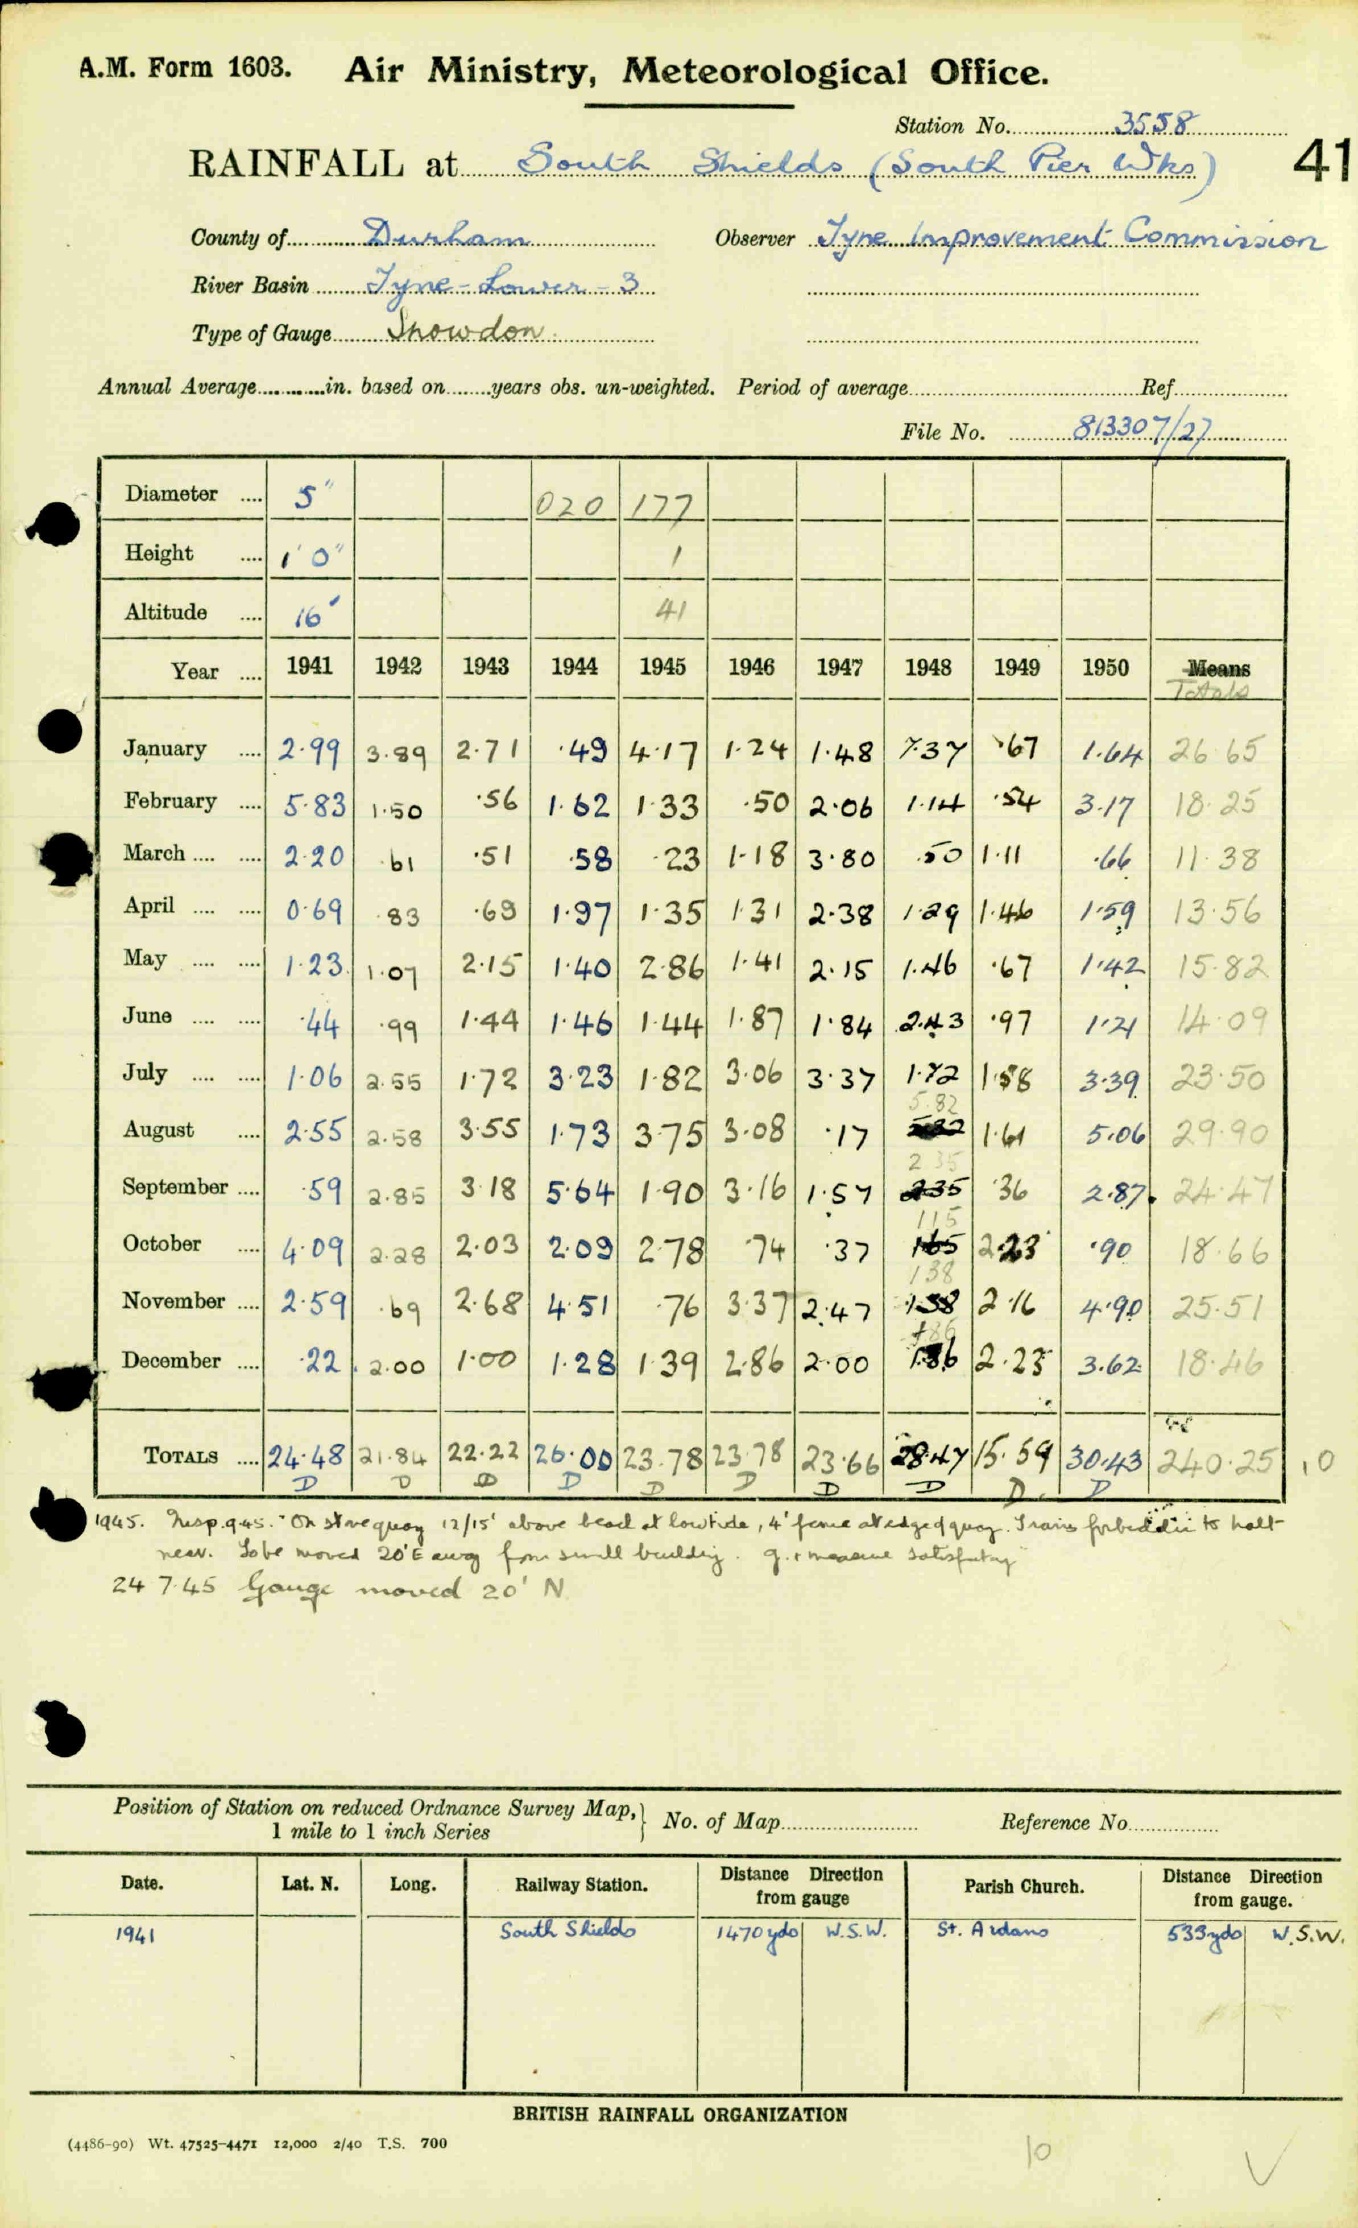 A.M. Form 1603. Air Ministry, Meteorological Office.
Station No. 3558
RAINFALL at South Shields (South Pier Wks) 41
County of Durham Observer Tyne Improvement Commission
River Basin Tyne - Lower - 3
Type of Gauge Snowdon
Annual Average in. based on years obs. un-weighted. Period of average Ref
File No. 813307/27
Diameter 5" 020 177
Height 1' 0" 1
Altitude 16' 41
Year 1941 1942 1943 1944 1945 1946 1947 1948 1949 1950 Means
Totals
January 2.99 3.89 2.71 .49 4.17 1.24 1.48 7.37 .67 1.64 26.65
February 5.83 1.50 .56 1.62 1.33 .50 2.06 1.14 .54 3.17 18.25
March 2.20 .61 .51 .58 .23 1.18 3.80 .50 1.11 .66 11.38
April 0.69 .83 .69 1.97 1.35 1.31 2.38 1.29 1.46 1.59 13.56
May 1.23 1.07 2.15 1.40 2.86 1.41 2.15 1.46 .67 1.42 15.82
June .44 .99 1.44 1.46 1.44 1.87 1.84 2.43 .97 1.21 14.09
July 1.06 2.55 1.72 3.23 1.82 3.06 3.37 1.72 1.58 3.39 23.50
August 2.55 2.58 3.55 1.73 3.75 3.08 .17 5.82 1.61 5.06 29.90
September .59 2.85 3.18 5.64 1.90 3.16 1.57 2.35 .36 2.87 24.47
October 4.09 2.28 2.03 2.09 2.78 .74 .37 1.15 2.23 .90 18.66
November 2.59 .69 2.68 4.51 .76 3.37 2.47 1.38 2.16 4.90 25.51
December .22 2.00 1.00 1.28 1.39 2.86 2.00 1.86 2.23 3.62 18.46
TOTALS 24.48 21.84 22.22 26.00 23.78 23.78 23.66 28.47 15.59 30.43 240.25 10
D D D D D D D D D D
1945. Insp. 9.45. "On stone quay 12/15' above beach at low tide, 4' fence at edge of quay. Trains forbidden to halt
near. To be moved 20' E away from small building. g. & measure satisfactory"
24 7.45 Gauge moved 20' N
Position of Station on reduced Ordnance Survey Map, No. of Map Reference No
1 mile to 1 inch Series
Date. Lat. N. Long. Railway Station. Distance Direction from gauge Parish Church. Distance Direction from gauge.
1941 South Shields 1470 yds W.S.W. St. Aidans 533 yds W.S.W.
BRITISH RAINFALL ORGANIZATION
(4486-90) Wt. 47525-4471 12,000 2/40 T.S. 700
10